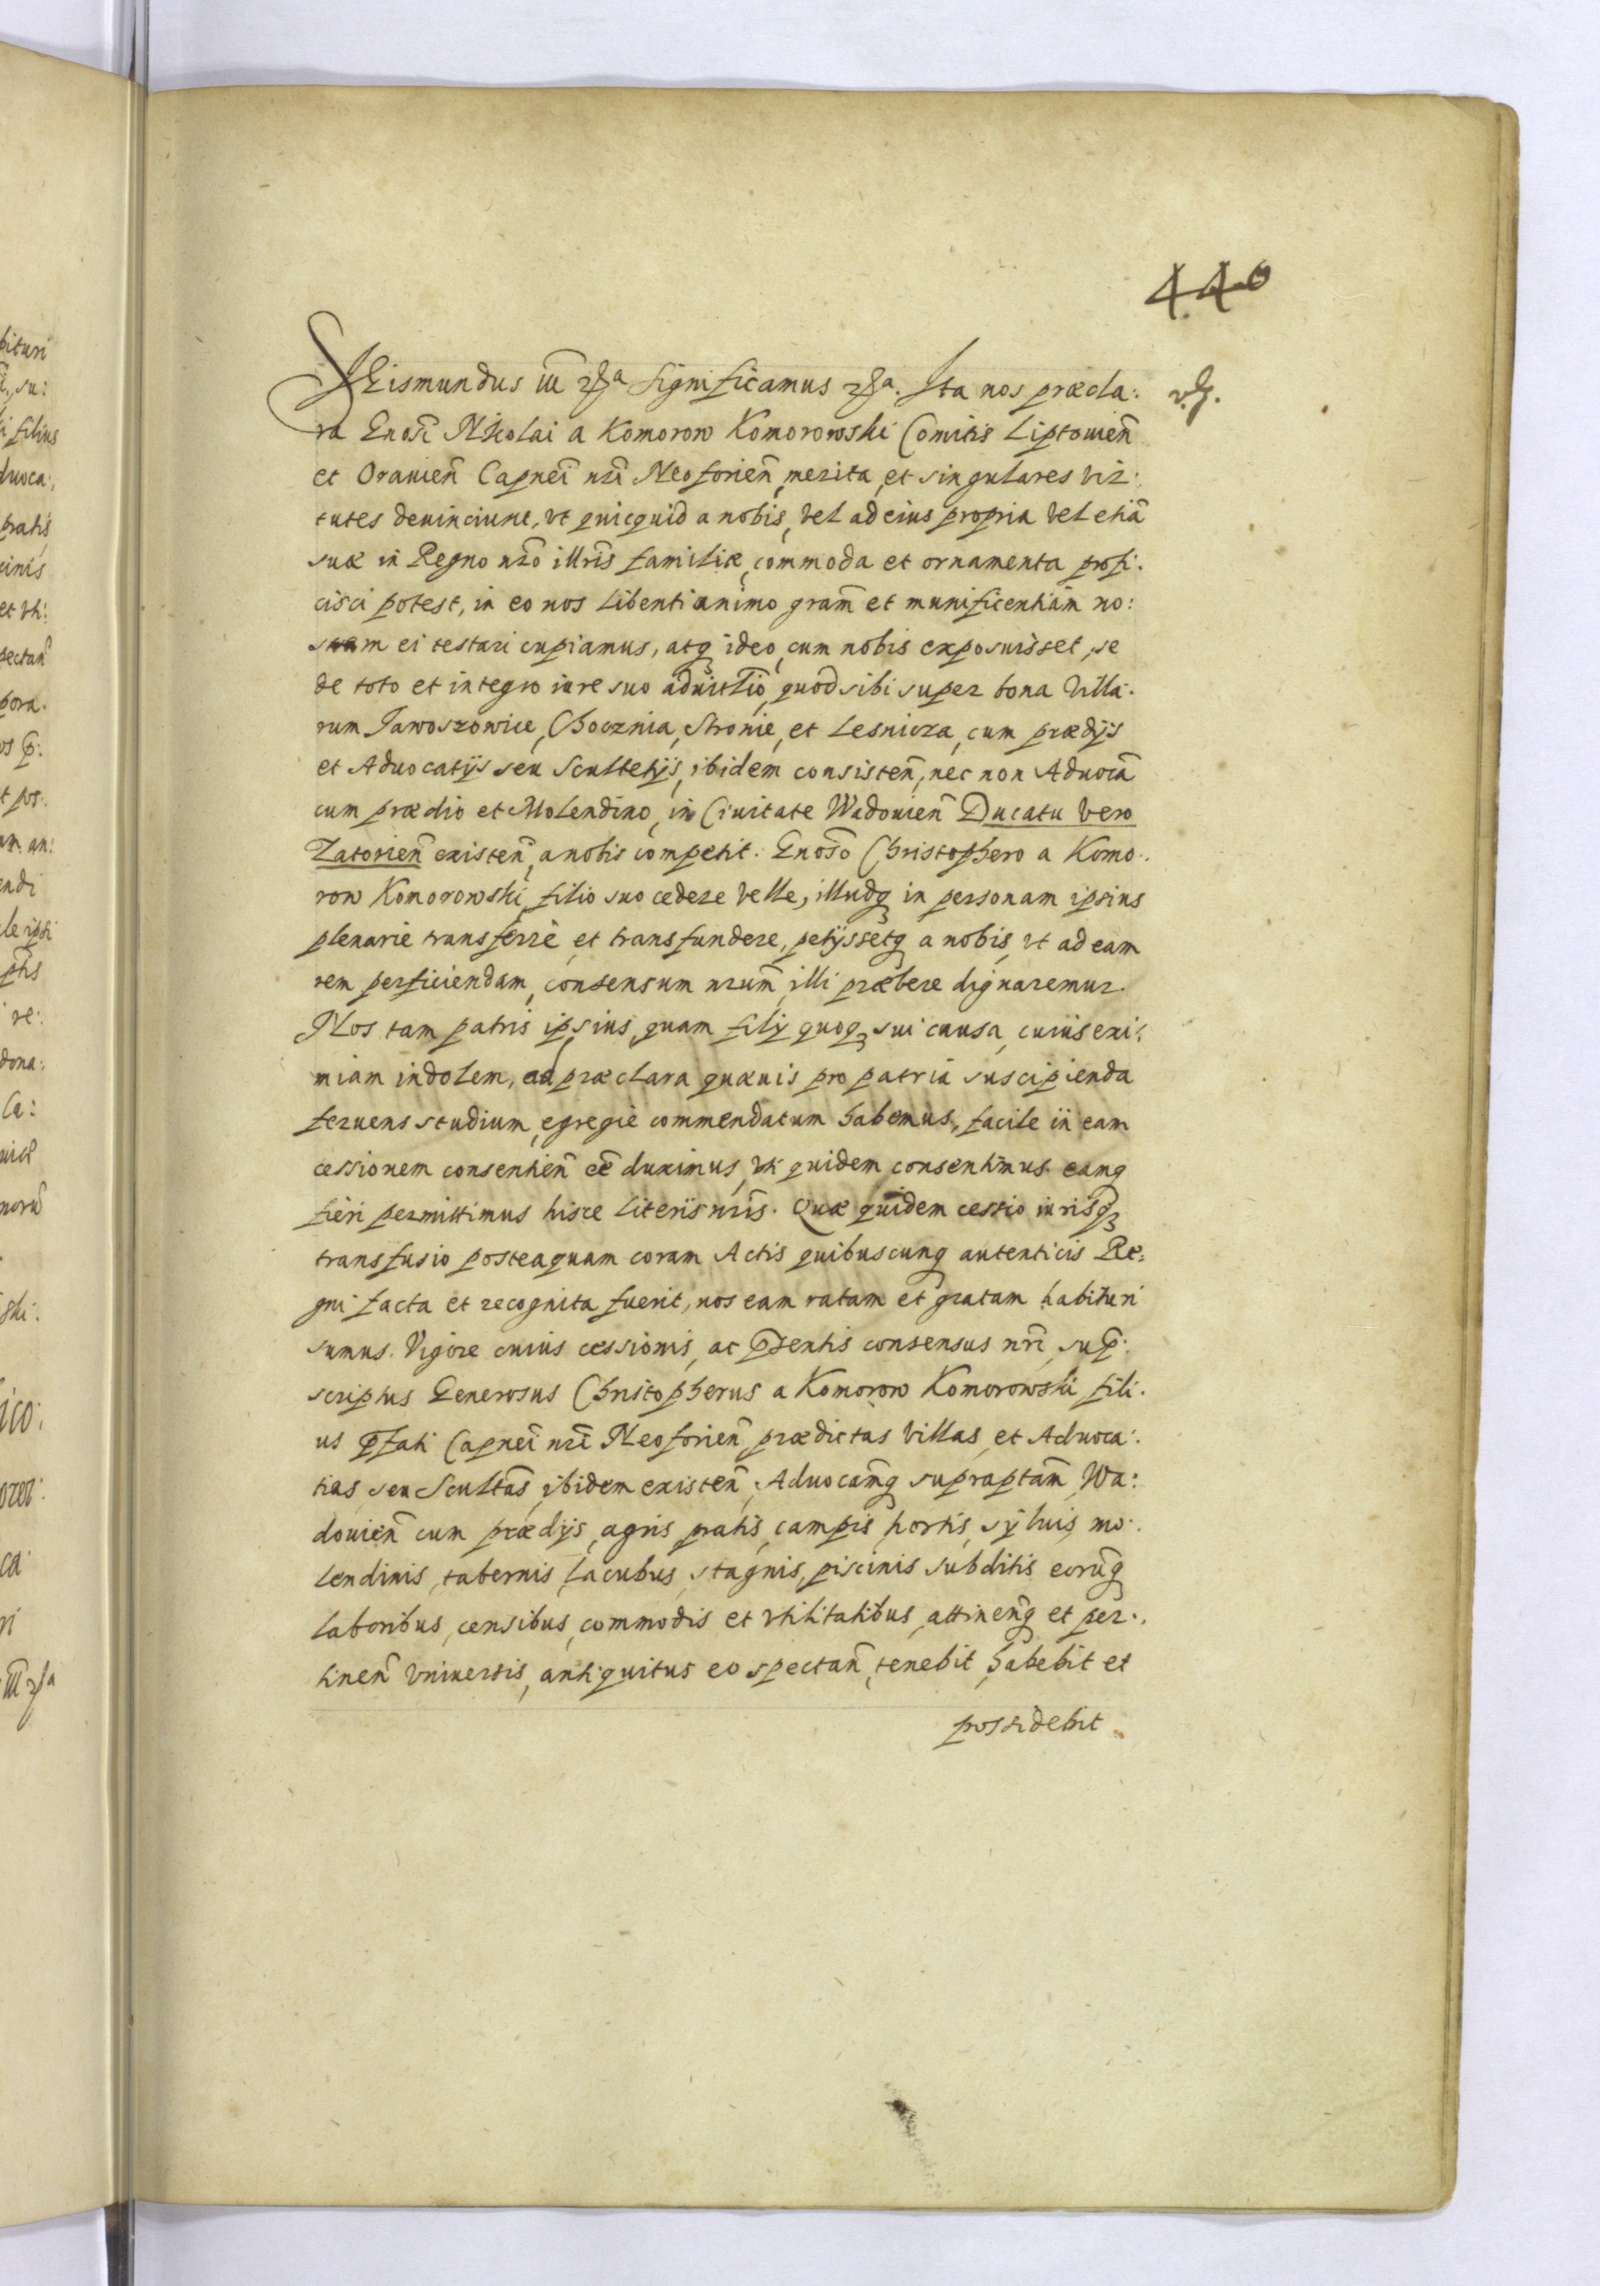 440
Sigismundus III etca Significamus etca. Ita nos præcla:
v. g.
ra Gnosi Nicolai a Komorow Komorowski Comitis Liptouien̄
et Orauien̄ Capnei nri Neoforien̄, merita, et singulares vir:
tutes deuinciunt, vt quicquid a nobis, vel ad eius propria vel etiā
suæ in Regno nrō illris familiæ, commoda et ornamenta profi:
cisci potest, in eo nos libenti animo gram̄ et munificentiam no:
stram ei testari cupiamus, atq ideo, cum nobis exposuisset, se
de toto et integro iure suo aduitlio, quod sibi super bona villa:
rum Jawoszowice, Chocznia, Stronie, et Lesnicza, cum prædijs
et Aduocatijs seu Scultetijs, ibidem consisten̄, nec non Aduocā
cum prædio et Molendino, in Ciuitate Wadouien̄ Ducatu vero
Zatorien̄ existen̄, a nobis competit. Gnoso Christophero a Komo:
row Komorowski, filio suo cedere velle, illudq in personam ipsius
plenarie transferre, et transfundere, petijssetq a nobis, vt ad eam
rem perficiendam, consensum nrum̄ illi præbere dignaremur.
Nos tam patris ipsius, quam filij quoq sui causa, cuius exi:
miam indolem, ad præclara quæuis pro patria suscipienda
feruens studium, egregie commendatum habemus, facile in eam
cessionem consentien̄ ee̅ duximus, vti quidem consentimus eamq
fieri permittimus hisce literis nris. Quæ quidem cessio iurisq
transfusio posteaquam coram Actis quibuscunq autenticis Re:
gni facta et recognita fuerit, nos eam ratam et gratam habituri
sumus. Vigore cuius cessionis, ac p̄sentis consensus nri, sup:
scriptus Generosus Christopherus a Komorow Komorowski fili:
us p̄fati Capnei nri Neoforien̄, prædictas villas, et Aduoca:
tias seu Scultās, ibidem existen̄, Aduocam̄q supraptam̄ Wa:
douien̄ cum prædijs, agris, pratis, campis, hortis, syluis, mo:
lendinis, tabernis, lacubus, stagnis, piscinis subditis eorūq
laboribus, censibus, commodis et vtilitatibus, attinen̄q et per:
tinen̄ vniuersis, antiquitus eo spectan̄, tenebit, habebit et
possidebit